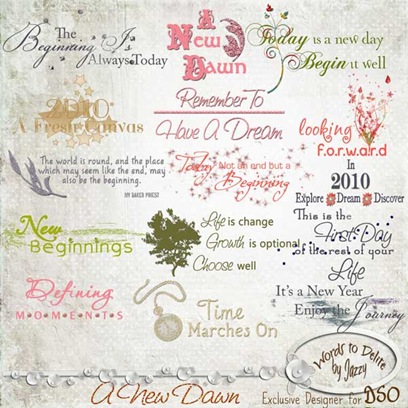 The
Beginning Is
Always Today
A
New
Dawn
Today is a new day
Begin it well
2010
A Fresh Canvas
Remember To
Have A Dream
looking
f.o.r.w.a.r.d
The world is round, and the place
which may seem like the end, may
also be the beginning.
IVY BAKER PRIEST
Today Not an end but a
Beginning
In
2010
Explore Dream Discover
New
Beginnings
Life is change
Growth is optional
Choose well
This is the
First Day
of the rest of your
Life
Defining
M•O•M•E•N•T•S
Time
Marches On
It's a New Year
Enjoy the Journey
Words to Delite
by Jazzy
A New Dawn
Exclusive Designer for DSO